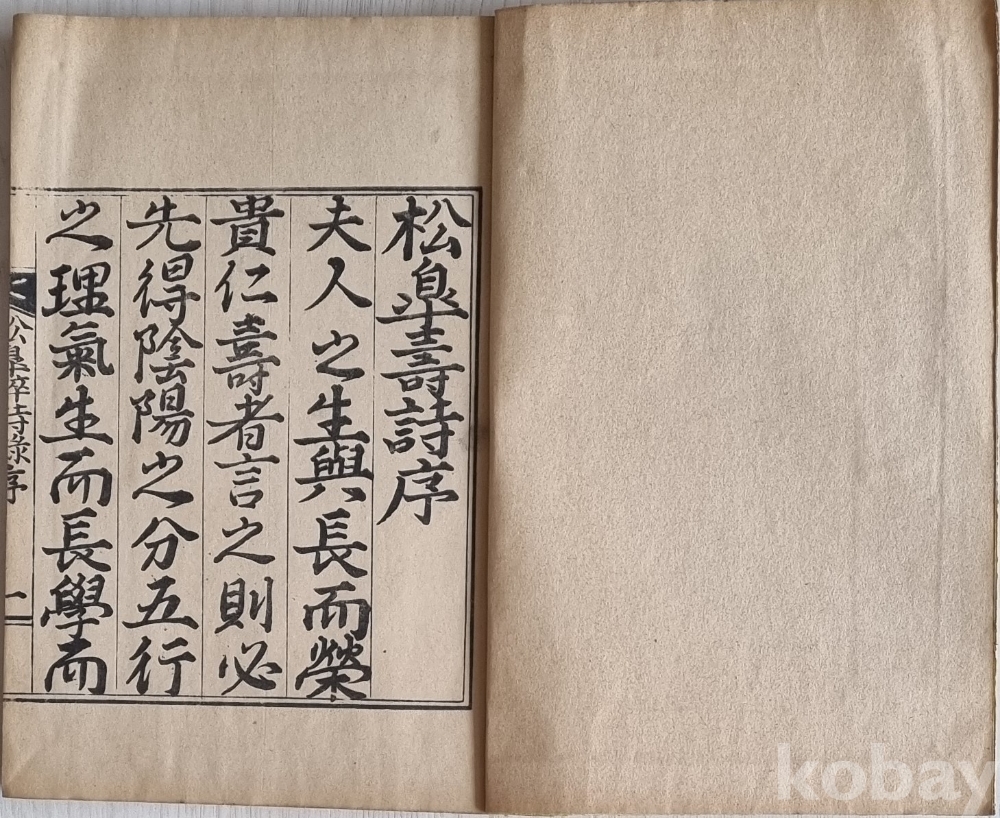 松皐壽詩序
夫人之生與長而榮
貴仁壽者言之則必
先得陰陽之分五行
之理氣生而長學而
松皐晬詩錄序
一
kobay